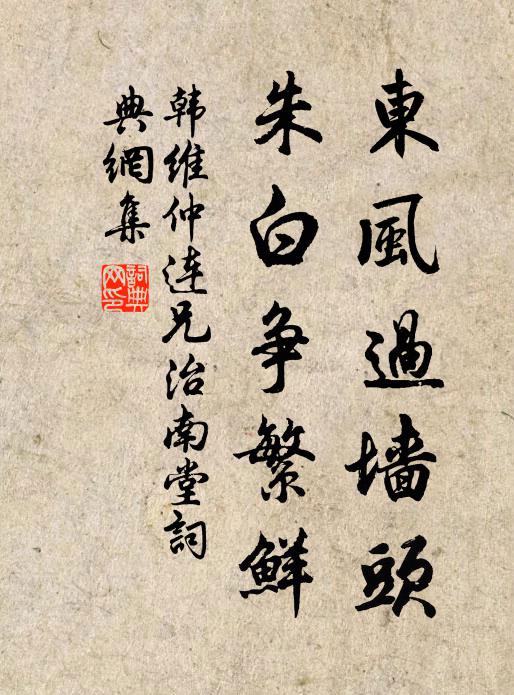 東風過墙頭
朱白争繁鮮
韩維仲連兄治南堂詞
典網集
詞典网印